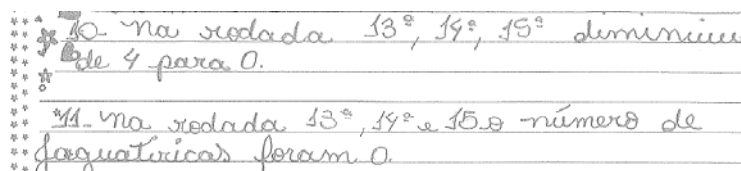 10- Na rodada 13ª, 14ª, 15ª diminuiu
de 4 para 0.
11- Na rodada 13ª, 14ª e 15 o número de
jaguatiricas foram 0.